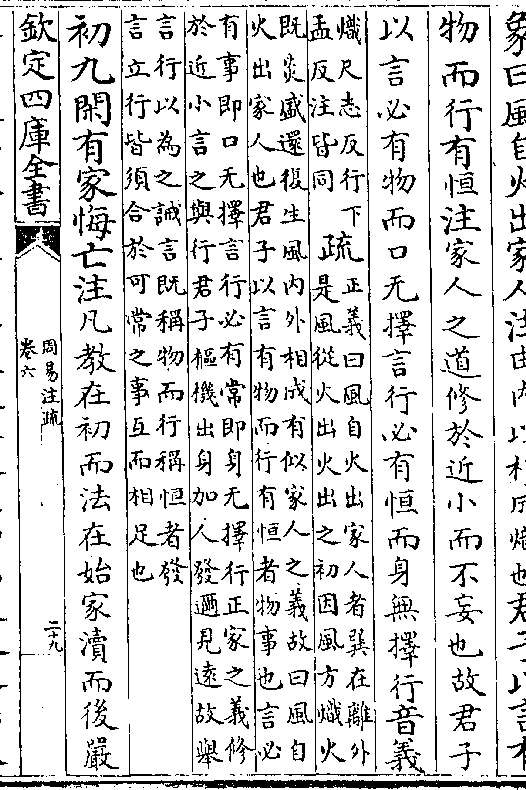 象曰風自火出家人注由内以相成熾也君子以言有
物而行有恒注家人之道修於近小而不妄也故君子
以言必有物而口无擇言行必有恒而身無擇行音義
熾尺志反行下
孟反注皆同
疏
正義曰風自火出家人者巽在離外
是風從火出火出之初因風方熾火
既炎盛還復生風内外相成有似家人之義故曰風自
火出家人也君子以言有物而行有恒者物事也言必
有事即口无擇言行必有常即身无擇行正家之義修
於近小言之與行君子樞機出身加人發邇見逺故舉
言行以為之誡言既稱物而行稱恒者發
言立行皆須合於可常之事互而相足也
初九閑有家悔亡注凡教在初而法在始家瀆而後嚴
欽定四庫全書
周易注疏
卷六
二十九